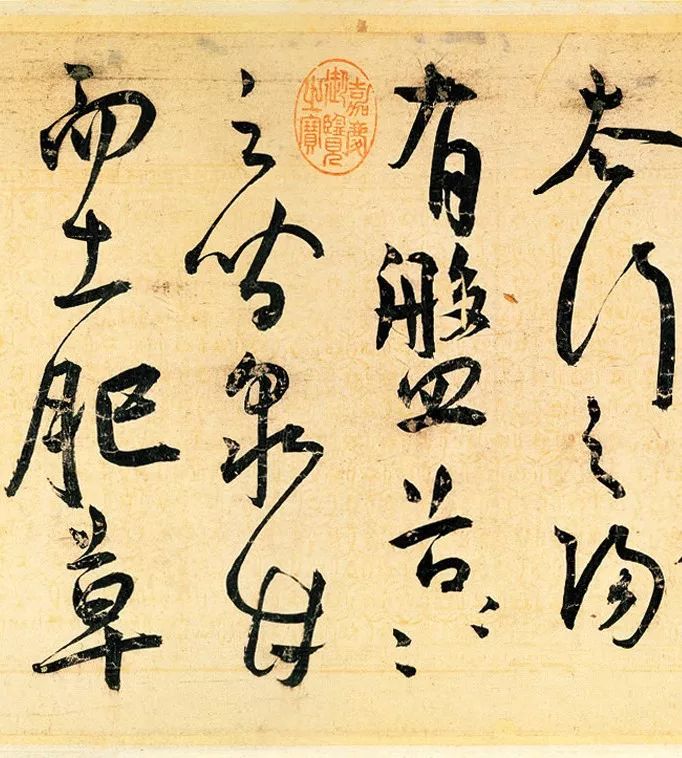 太行之陽
有盤谷〻〻
之間泉甘
而土肥草
嘉慶御覽之寶